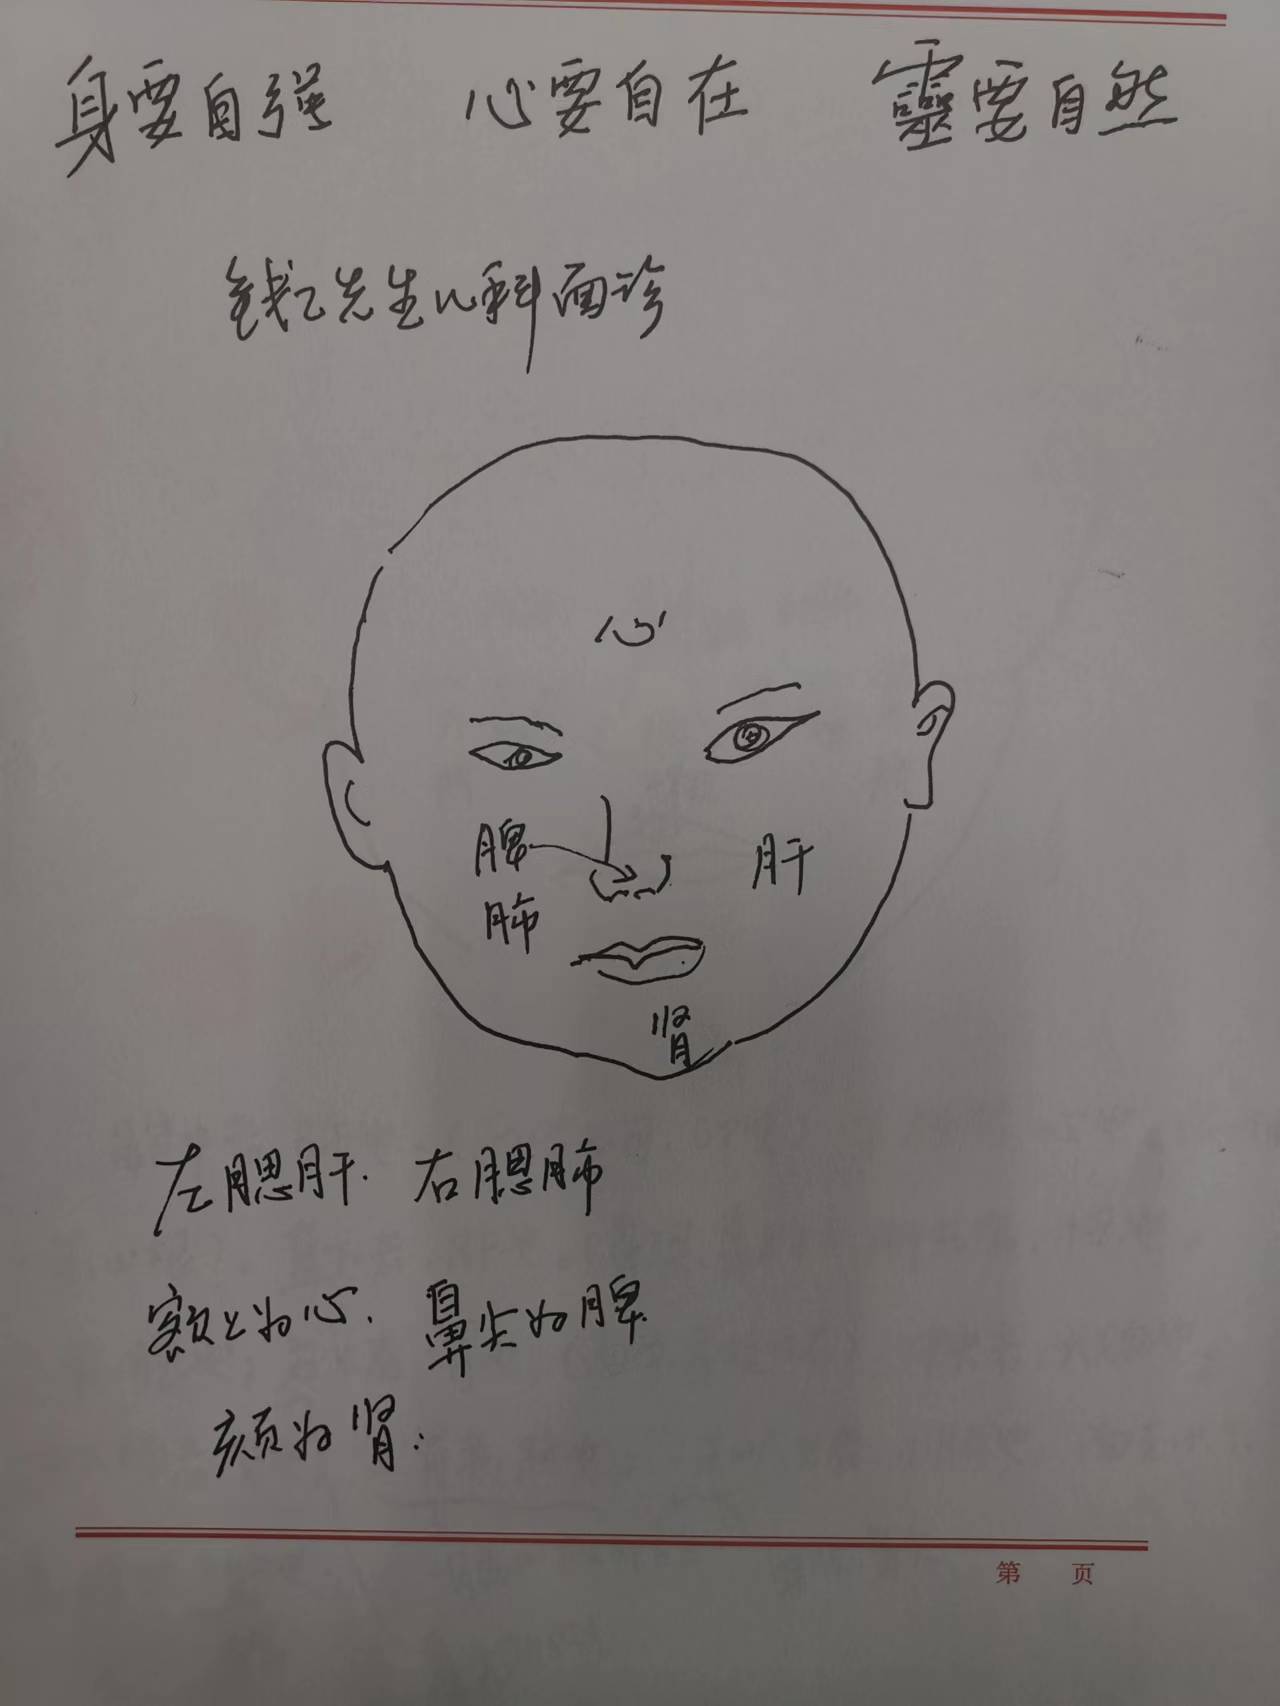 身要自强 心要自在 靈要自然
钱乙先生儿科面诊
心
脾 肝
肺
肾
左腮肝. 右腮肺
额上为心. 鼻尖为脾.
颏为肾.
第 页